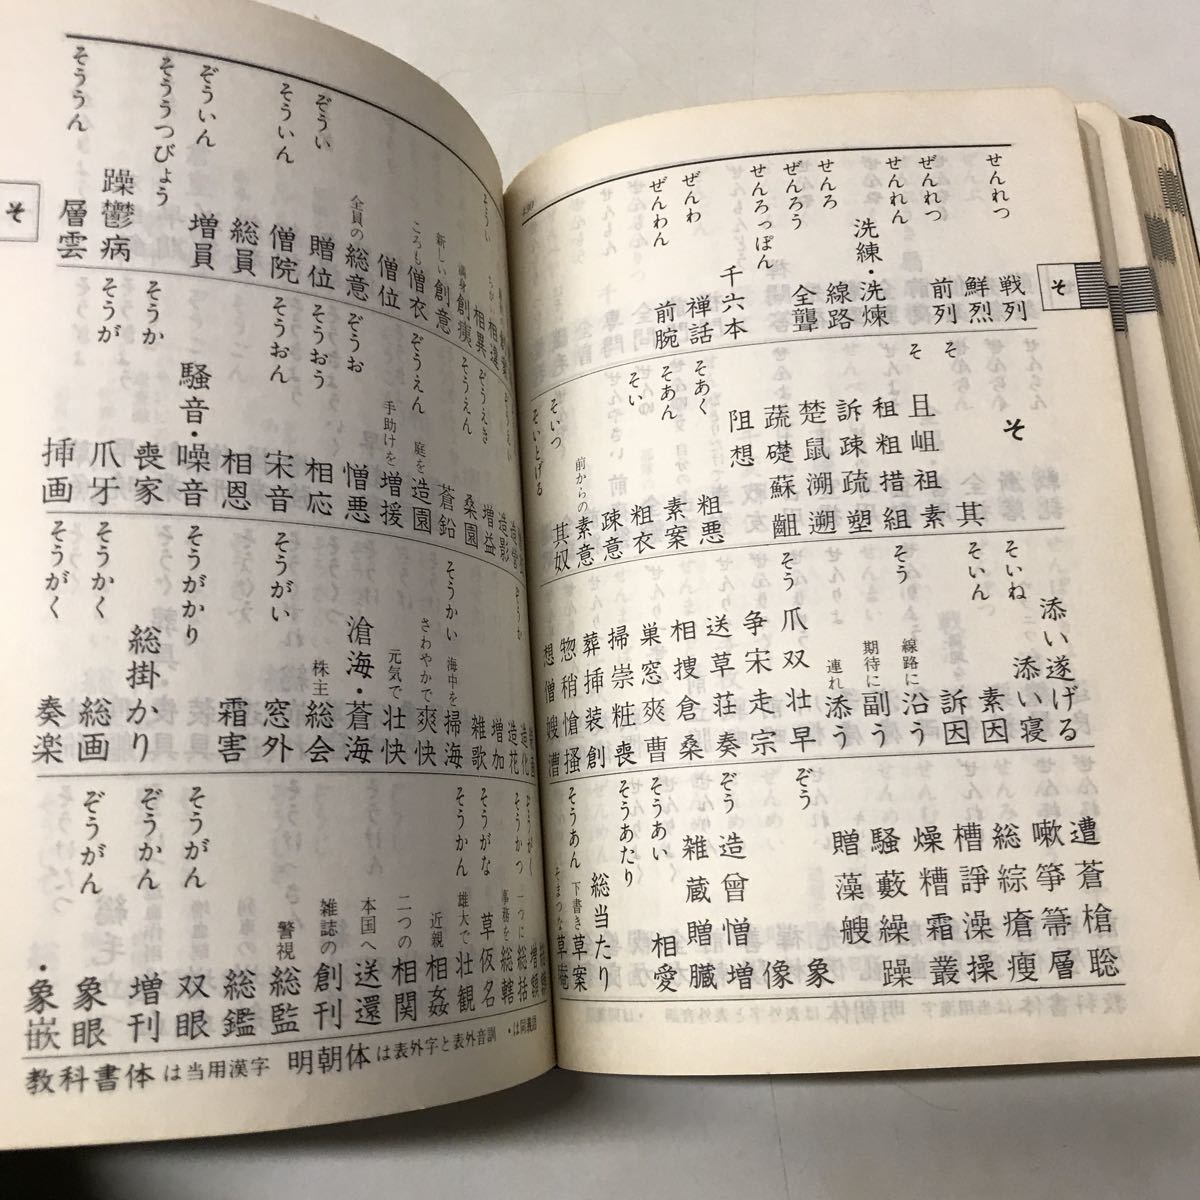 そ
せんれつ 戦列
鮮烈
ぜんれつ 前列
せんれん 洗練・洗煉
せんろ 線路
ぜんろう 全聾
せんろっぽん 千六本
ぜんわ 禅話
ぜんわん 前腕
そ
そ 其
そ 且岨祖素
租粗措組
訴疎疏塑
楚鼠溯遡
蔬礎蘇齟
阻想
そあく 粗悪
そあん 素案
そい 粗衣
疎意
前からの 素意
そいつ 其奴
そいとげる
添い遂げる
そいね 添い寝
そいん 素因
訴因
そう 線路に 沿う
期待に 副う
連れ 添う
そう 爪双壮早
争宋走宗
送草荘奏
相捜倉桑
巣窓爽曹
掃崇粧喪
葬挿装創
惣稍愴搔
想僧嫂漕
遭蒼槍聡
嗽箏箒層
総綜瘡瘦
槽諍澡操
燥糟霜叢
騒藪繰躁
贈藻艘
ぞう 象
像
ぞう 造曾憎増
雑蔵贈臓
そうあい 相愛
そうあたり 総当たり
そうあん 下書き 草案
そまつな 草庵
そうい
相違
相異
満身 創痍
新しい 創意
ころも 僧衣
僧位
全員の 総意
ぞうい 贈位
そういん 僧院
総員
ぞういん 増員
そううつびょう 躁鬱病
そううん 層雲
ぞうえい
造営
造影
ぞうえき 増益
そうえん 桑園
蒼鉛
ぞうえん 庭を 造園
手助けを 増援
ぞうお 憎悪
そうおう 相応
そうおん 宋音
相恩
騒音・噪音
そうか 喪家
そうが 爪牙
挿画
ぞうか
造化
造花
増加
雑歌
そうかい 海中を 掃海
さわやかで 爽快
元気で 壮快
滄海・蒼海
株主 総会
そうがい 窓外
霜害
そうがかり 総掛かり
そうかく 総画
そうがく 奏楽
ぞうがく
増額
そうかつ 一つに 総括
事務を 総轄
そうがな 草仮名
そうかん 雄大で 壮観
近親 相姦
二つの 相関
本国へ 送還
雑誌の 創刊
警視 総監
総鑑
そうがん 双眼
ぞうかん 増刊
ぞうがん 象眼
・象嵌
教科書体は当用漢字 明朝体は表外字と表外音訓 ・は同義語
そ